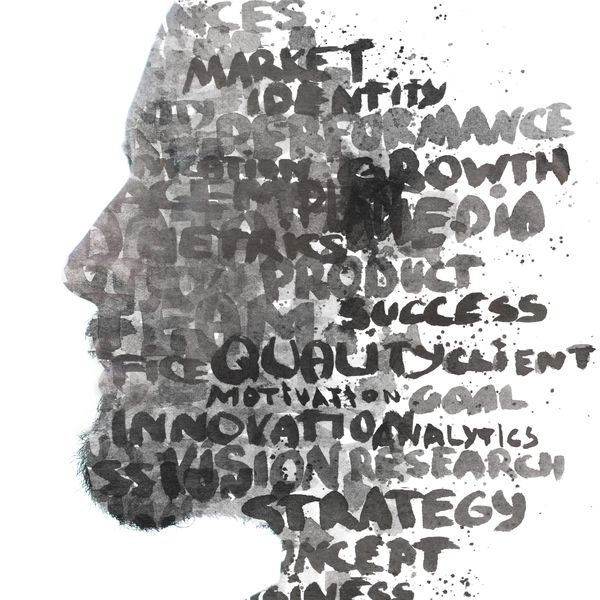 MARKET
IDENTITY
PERFORMANCE
GROWTH
MEDIA
METRICS
PRODUCT
TEAM
SUCCESS
QUALITY CLIENT
MOTIVATION GOAL
INNOVATION ANALYTICS
VISION RESEARCH
STRATEGY
CONCEPT